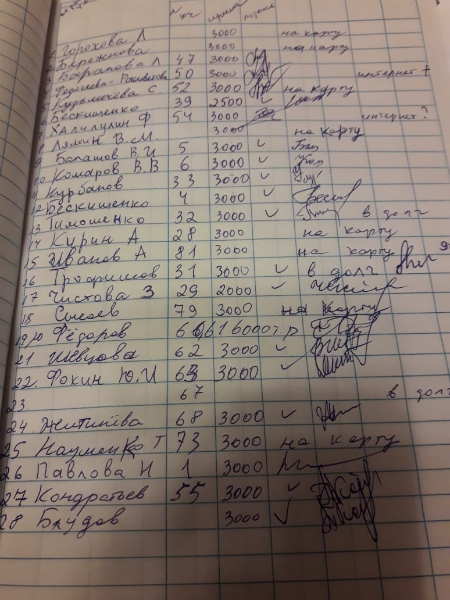 Горохова Л 3000 на карту
Бережнова 3000 на карту
47 3000
50 3000 интернет +
С 52 3000 на карту
Бескишенко 39 2500 ✓
Халиулин Ф 54 3000 интернет?
Лямин В.М. 3000 на карту
9 Балашов В.И 5 3000 ✓
10 Комаров В.В 6 3000 ✓
11 Курбанов 33 3000 ✓
12 Бескишенко 4 3000 ✓
13 Тимошенко 32 3000 ✓ в долг
14 Курин А 28 3000 на карту
15 Иванов А 81 3000 на карту
16 Трофимов 31 3000 ✓ в долг
17 Чистова З 29 2000 ✓
18 79 3000 на карту
Фёдоров 6000 т.р
21 Шевцова 62 3000 ✓
22. Фокин Ю.И 63 3000 ✓
23 67 в долг
24 68 3000 ✓
25 Науменко Т 73 3000 на карту
26 Павлова Н 1 3000
27 Кондратьев 55 3000 ✓
28 Блудов 3000 ✓